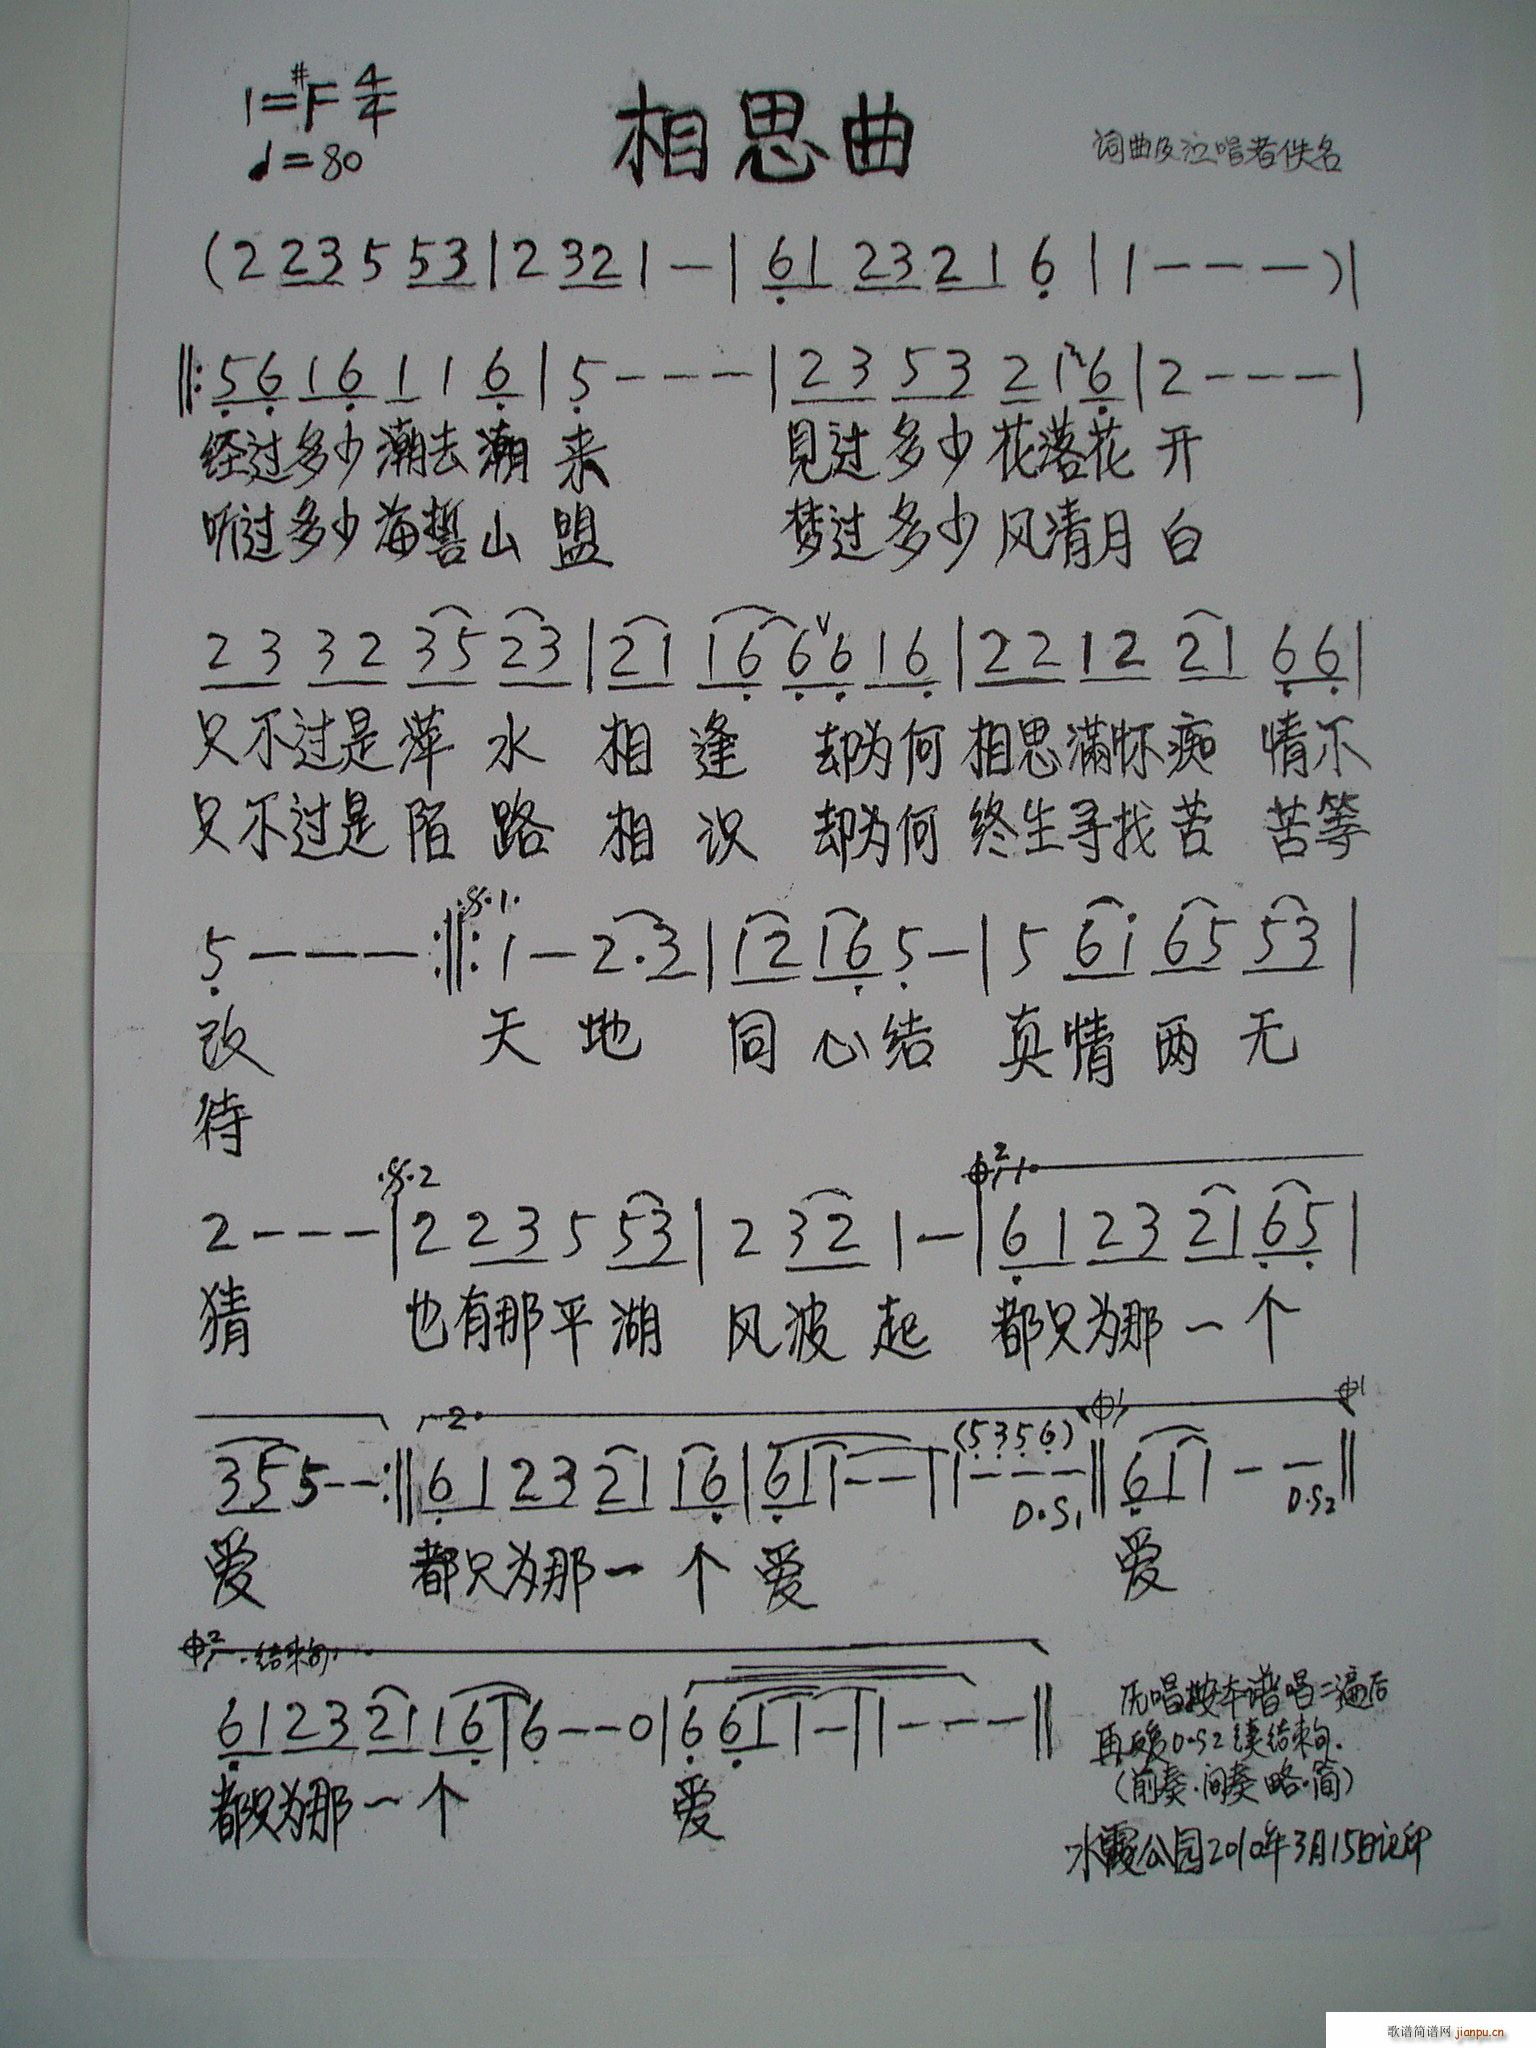 1=#F 4/4
♩=80
相思曲
词曲及泣唱者佚名
(2 23 5 53 | 2 32 1 — | 61 23 21 6 | 1 — — — )|
‖: 56 16 1 1 6 | 5 — — — | 23 53 21 6 | 2 — — — |
经过多少潮去潮来 见过多少花落花开
听过多少海誓山盟 梦过多少风清月白
23 32 35 23 | 21 16 6∨6 16 | 22 12 21 66 |
只不过是萍水相逢 却为何相思满怀痴情不
只不过是陌路相识 却为何终生寻找苦苦等
𝄋.1.
5 — — — :‖: 1 — 2.3 | 12 16 5 — | 5 6i 65 53 |
改 天地同心结 真情两无
待
𝄋.2 𝄌2, 1.
2 — — — | 2 23 5 53 | 2 32 1 — | 61 23 21 65 |
猜 也有那平湖风波起 都只为那一个
2. 𝄌1 𝄌1
(5356)
35 5 — — :‖ 61 23 21 16 | 61 1 — — | 1 — — — ‖ 61 1 — — ‖
D.S1 D.S2
爱 都只为那一个爱 爱
𝄌2, 结束句
61 23 21 16 | 6 — — 0 | 6 61 1 — | 1 — — — ‖
都只为那一个 爱
唱按本谱唱二遍后
再反复D.S2接结束句.
(前奏.间奏略.简)
冰霞公园2010年3月15日记印
歌谱简谱网 jianpu.cn